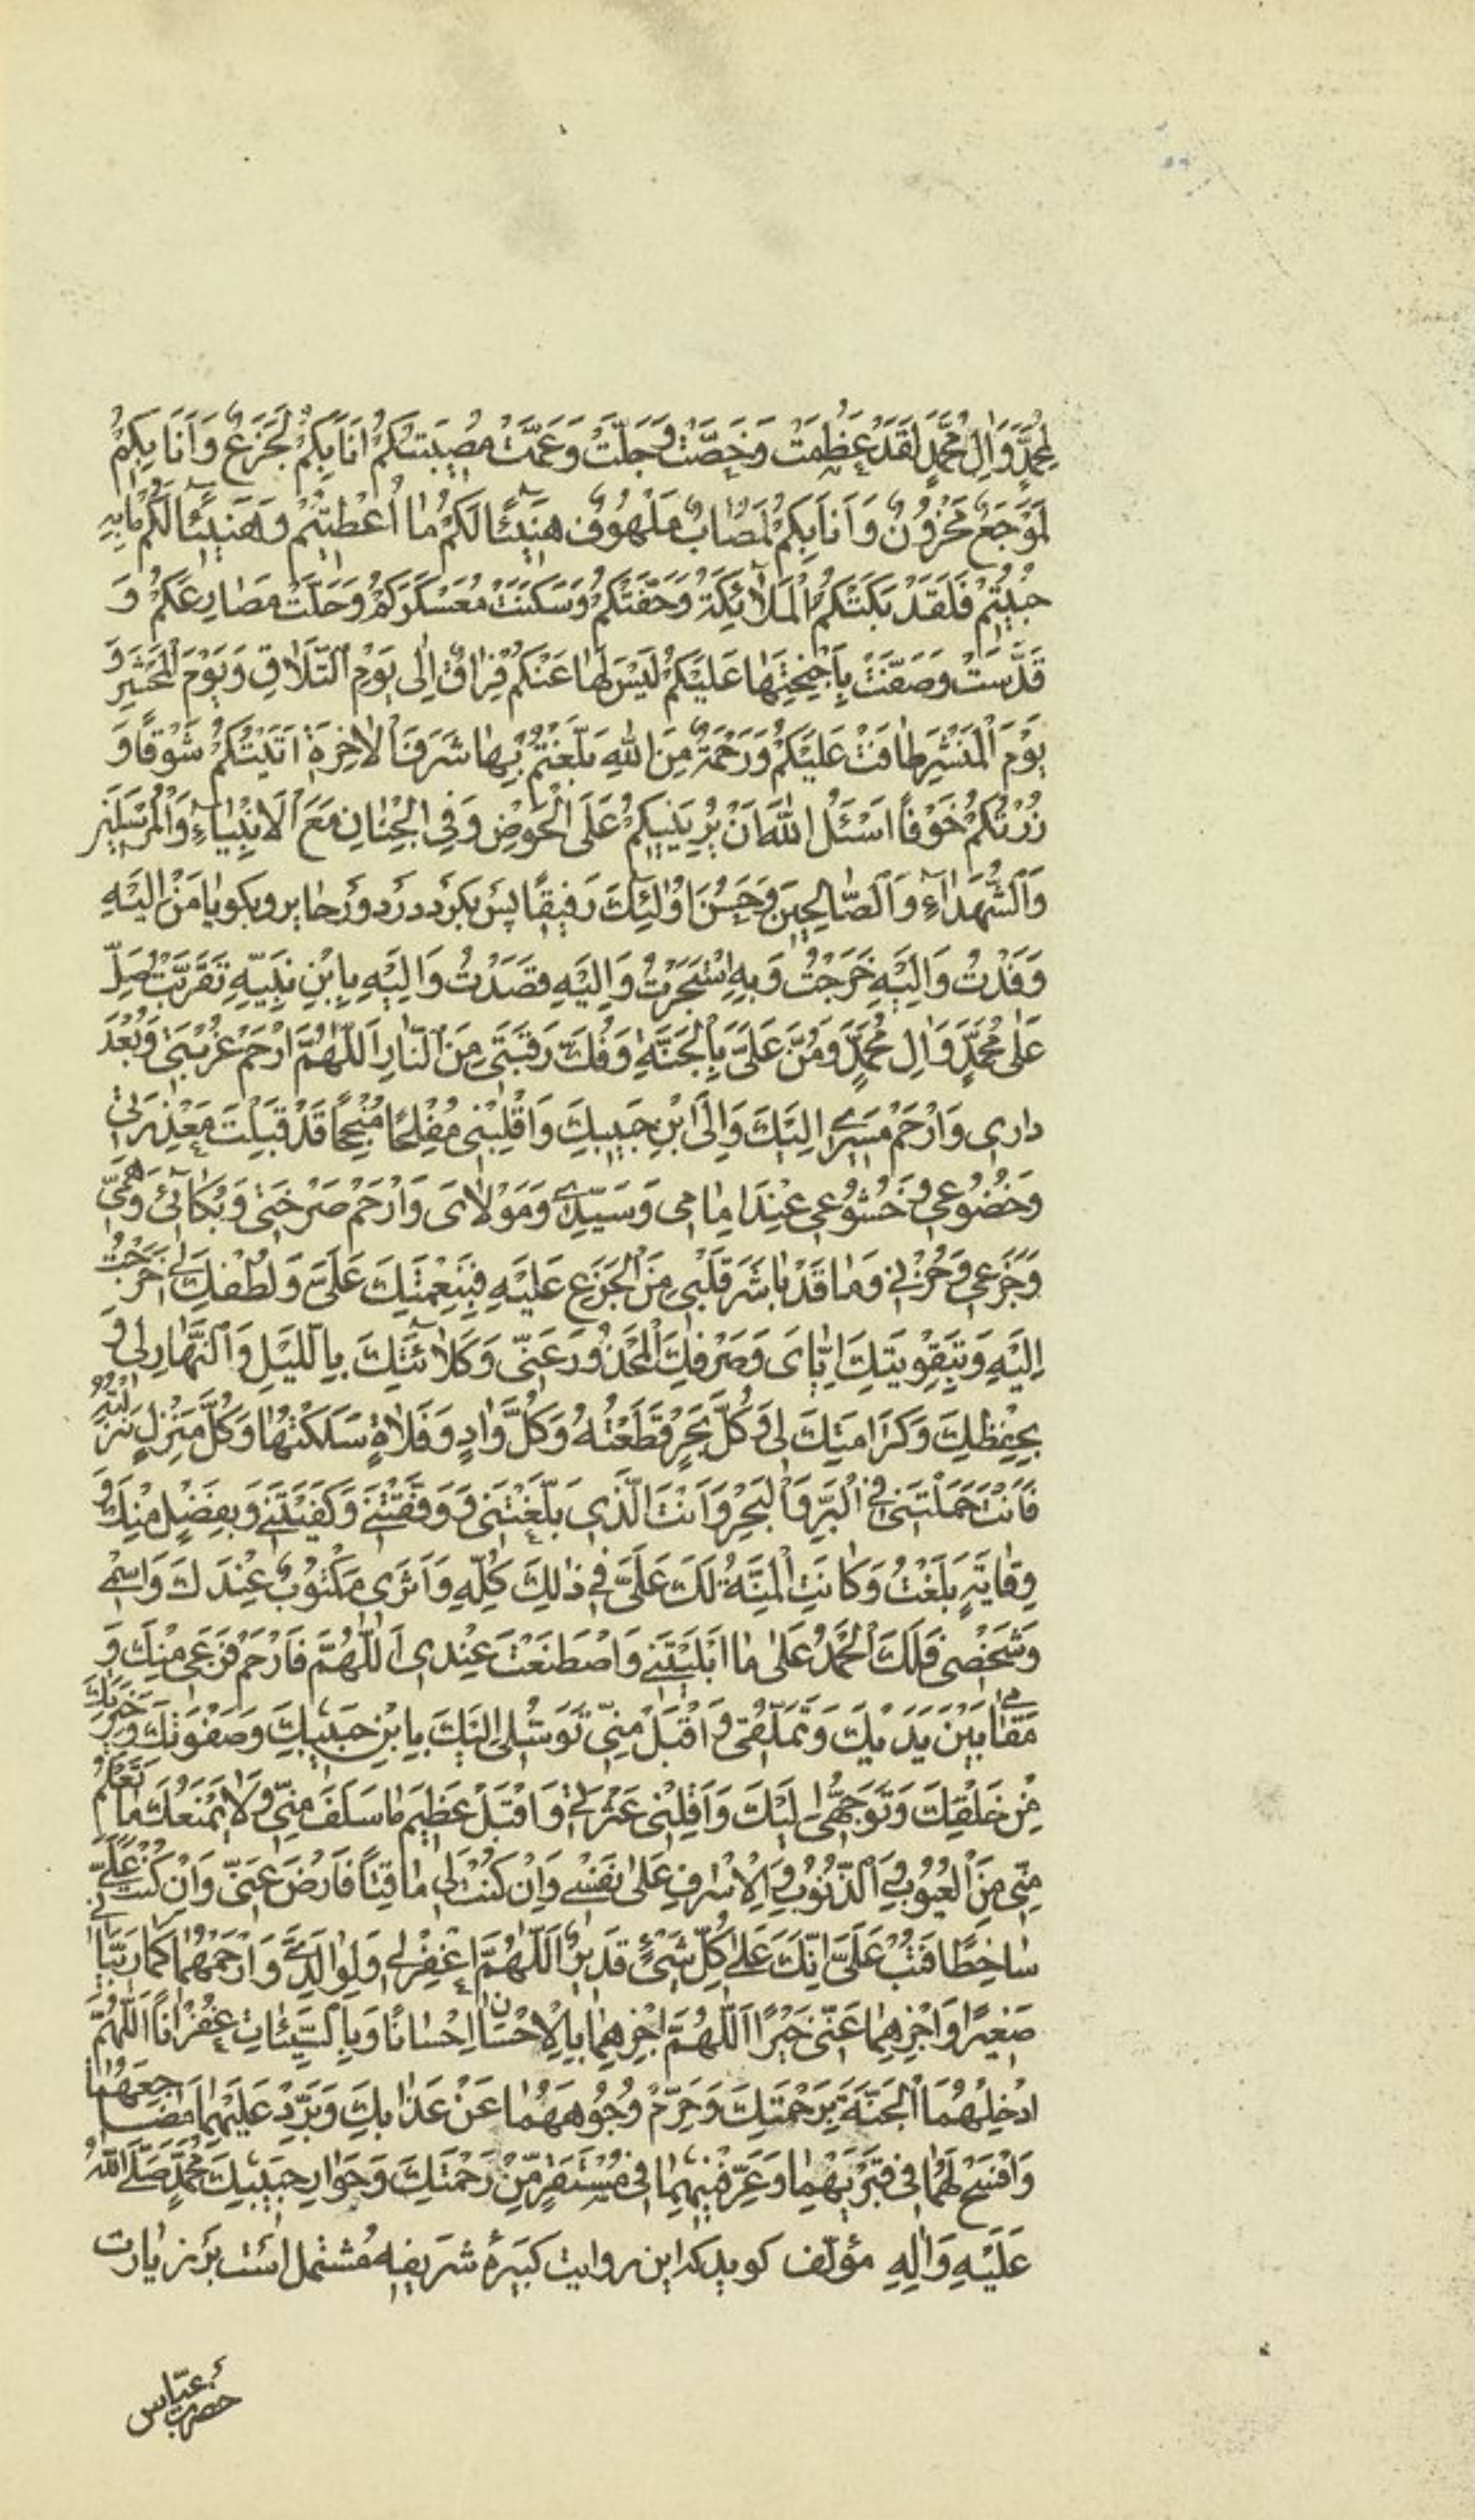 لِمُحَمَّدٍ وَاٰلِ مُحَمَّدٍ لَقَدْ عَظُمَتْ وَخَصَّتْ وَجَلَّتْ وَعَمَّتْ مُصِيبَتُكُمْ اَنَا بِكُمْ لَجَزِعٌ وَاَنَا بِكُمْ
لَمُوجَعٌ مَحْزُونٌ وَاَنَا بِكُمْ لَمُصَابٌ مَلْهُوفٌ هَنِيئًا لَكُمْ مٰا اُعْطِيتُمْ وَهَنِيئًا لَكُمْ مٰا بِهِ
حُبِيتُمْ فَلَقَدْ بَكَتْكُمُ الْمَلٰائِكَةُ وَحَفَّتْكُمْ وَسَكَنَتْ مُعَسْكَرَكُمْ وَحَلَّتْ مَصٰارِعَكُمْ وَ
قَدَّسَتْ وَصَفَّتْ بِاَجْنِحَتِهٰا عَلَيْكُمْ لَيْسَ لَهٰا عَنْكُمْ فِرٰاقٌ اِلٰى يَوْمِ التَّلَاقِ وَيَوْمَ الْمَحْشَرِ وَ
يَوْمَ الْمَنْشَرِ طٰافَتْ عَلَيْكُمْ وَرَحْمَةٌ مِنَ اللهِ بَلَّغْتُمْ بِهٰا شَرَفَ الْاٰخِرَةِ اَتَيْتُكُمْ شَوْقًا وَ
زُرْتُكُمْ خَوْفًا اَسْئَلُ اللهَ اَنْ يُرِيَنِيكُمْ عَلَى الْحَوْضِ وَفِى الْجِنٰانِ مَعَ الْاَنْبِيٰاءِ وَالْمُرْسَلِينَ
وَالشُّهَدٰاءِ وَالصّٰالِحِينَ وَحَسُنَ اُولٰئِكَ رَفِيقًا پس بكرد در دور حاير و بكو يٰا مَنْ اِلَيْهِ
وَفَدْتُ وَاِلَيْهِ خَرَجْتُ وَبِهِ اسْتَجَرْتُ وَاِلَيْهِ قَصَدْتُ وَاِلَيْهِ بِابْنِ نَبِيِّهِ تَقَرَّبْتُ صَلِّ
عَلٰى مُحَمَّدٍ وَاٰلِ مُحَمَّدٍ وَمُنَّ عَلَىَّ بِالْجَنَّةِ وَفُكَّ رَقَبَتِى مِنَ النّٰارِ اَللّٰهُمَّ ارْحَمْ غُرْبَتِى وَبُعْدَ
دارِى وَارْحَمْ مَسِيرِى اِلَيْكَ وَاِلَى ابْنِ حَبِيبِكَ وَاقْلِبْنِى مُفْلِحًا مُنْجِحًا قَدْ قَبِلْتَ مَعْذِرَتِى
وَخُضُوعِى وَخُشُوعِى عِنْدَ اِمٰامِى وَسَيِّدِى وَمَوْلٰاىَ وَارْحَمْ صَرْخَتِى وَبُكٰائِى وَهَمِّى
وَجَزَعِى وَحُزْنِى وَمٰا قَدْ بٰاشَرَ قَلْبِى مِنَ الْجَزَعِ عَلَيْهِ فَبِنِعْمَتِكَ عَلَىَّ وَلُطْفِكَ لِى خَرَجْتُ
اِلَيْهِ وَبِتَقْوِيَتِكَ اِيّٰاىَ وَصَرْفِكَ الْمَحْذُورَ عَنِّى وَكَلٰائَتِكَ بِاللَّيْلِ وَالنَّهٰارِ لِى وَ
بِحِفْظِكَ وَكَرٰامَتِكَ لِى وَكُلَّ بَحْرٍ قَطَعْتُهُ وَكُلَّ وٰادٍ وَفَلٰاةٍ سَلَكْتُهٰا وَكُلَّ مَنْزِلٍ نَزَلْتُهُ
فَاَنْتَ حَمَلْتَنِى فِى الْبَرِّ وَالْبَحْرِ وَاَنْتَ الَّذِى بَلَّغْتَنِى وَوَفَّقْتَنِى وَكَفَيْتَنِى وَبِفَضْلٍ مِنْكَ وَ
وِقٰايَةٍ بَلَغْتُ وَكٰانَتِ الْمِنَّةُ لَكَ عَلَىَّ فِى ذٰلِكَ كُلِّهِ وَاَثَرِى مَكْتُوبٌ عِنْدَكَ وَاسْمِى
وَشَخْصِى فَلَكَ الْحَمْدُ عَلٰى مٰا اَبْلَيْتَنِى وَاصْطَنَعْتَ عِنْدِى اَللّٰهُمَّ فَارْحَمْ فَزَعِى مِنْكَ وَ
مَقٰامِى بَيْنَ يَدَيْكَ وَتَمَلُّقِى وَاقْبَلْ مِنِّى تَوَسُّلِى اِلَيْكَ بِابْنِ حَبِيبِكَ وَصَفْوَتِكَ وَخِيَرَتِكَ
مِنْ خَلْقِكَ وَتَوَجُّهِى اِلَيْكَ وَاَقِلْنِى عَثْرَتِى وَاقْبَلْ عَظِيمَ مٰا سَلَفَ مِنِّى وَلٰا يَمْنَعُكَ مٰا تَعْلَمُ
مِنِّى مِنَ الْعُيُوبِ وَالذُّنُوبِ وَالْاِسْرٰافِ عَلٰى نَفْسِى وَاِنْ كُنْتَ لِى مٰاقِتًا فَارْضَ عَنِّى وَاِنْ كُنْتَ عَلَىَّ
سٰاخِطًا فَتُبْ عَلَىَّ اِنَّكَ عَلٰى كُلِّ شَىْءٍ قَدِيرٌ اَللّٰهُمَّ اغْفِرْ لِى وَلِوٰالِدَىَّ وَارْحَمْهُمٰا كَمٰا رَبَّيٰانِى
صَغِيرًا وَاجْزِهِمٰا عَنِّى خَيْرًا اَللّٰهُمَّ اجْزِهِمٰا بِالْاِحْسٰانِ اِحْسٰانًا وَبِالسَّيِّئٰاتِ غُفْرٰانًا اَللّٰهُمَّ
اَدْخِلْهُمَا الْجَنَّةَ بِرَحْمَتِكَ وَحَرِّمْ وُجُوهَهُمٰا عَنْ عَذٰابِكَ وَبَرِّدْ عَلَيْهِمٰا مَضٰاجِعَهُمٰا
وَافْسَحْ لَهُمٰا فِى قَبْرَيْهِمٰا وَعَرِّفْنِيهِمٰا فِى مُسْتَقَرٍّ مِنْ رَحْمَتِكَ وَجَوٰارِ حَبِيبِكَ مُحَمَّدٍ صَلَّى اللهُ
عَلَيْهِ وَاٰلِهِ مؤلّف كويد كه اين روايت كبيرهٔ شريفه مشتمل است بر زيارت
حضرت عبّاس